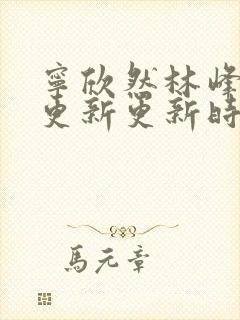 寧欣然林峰
更新更新時
馬元章